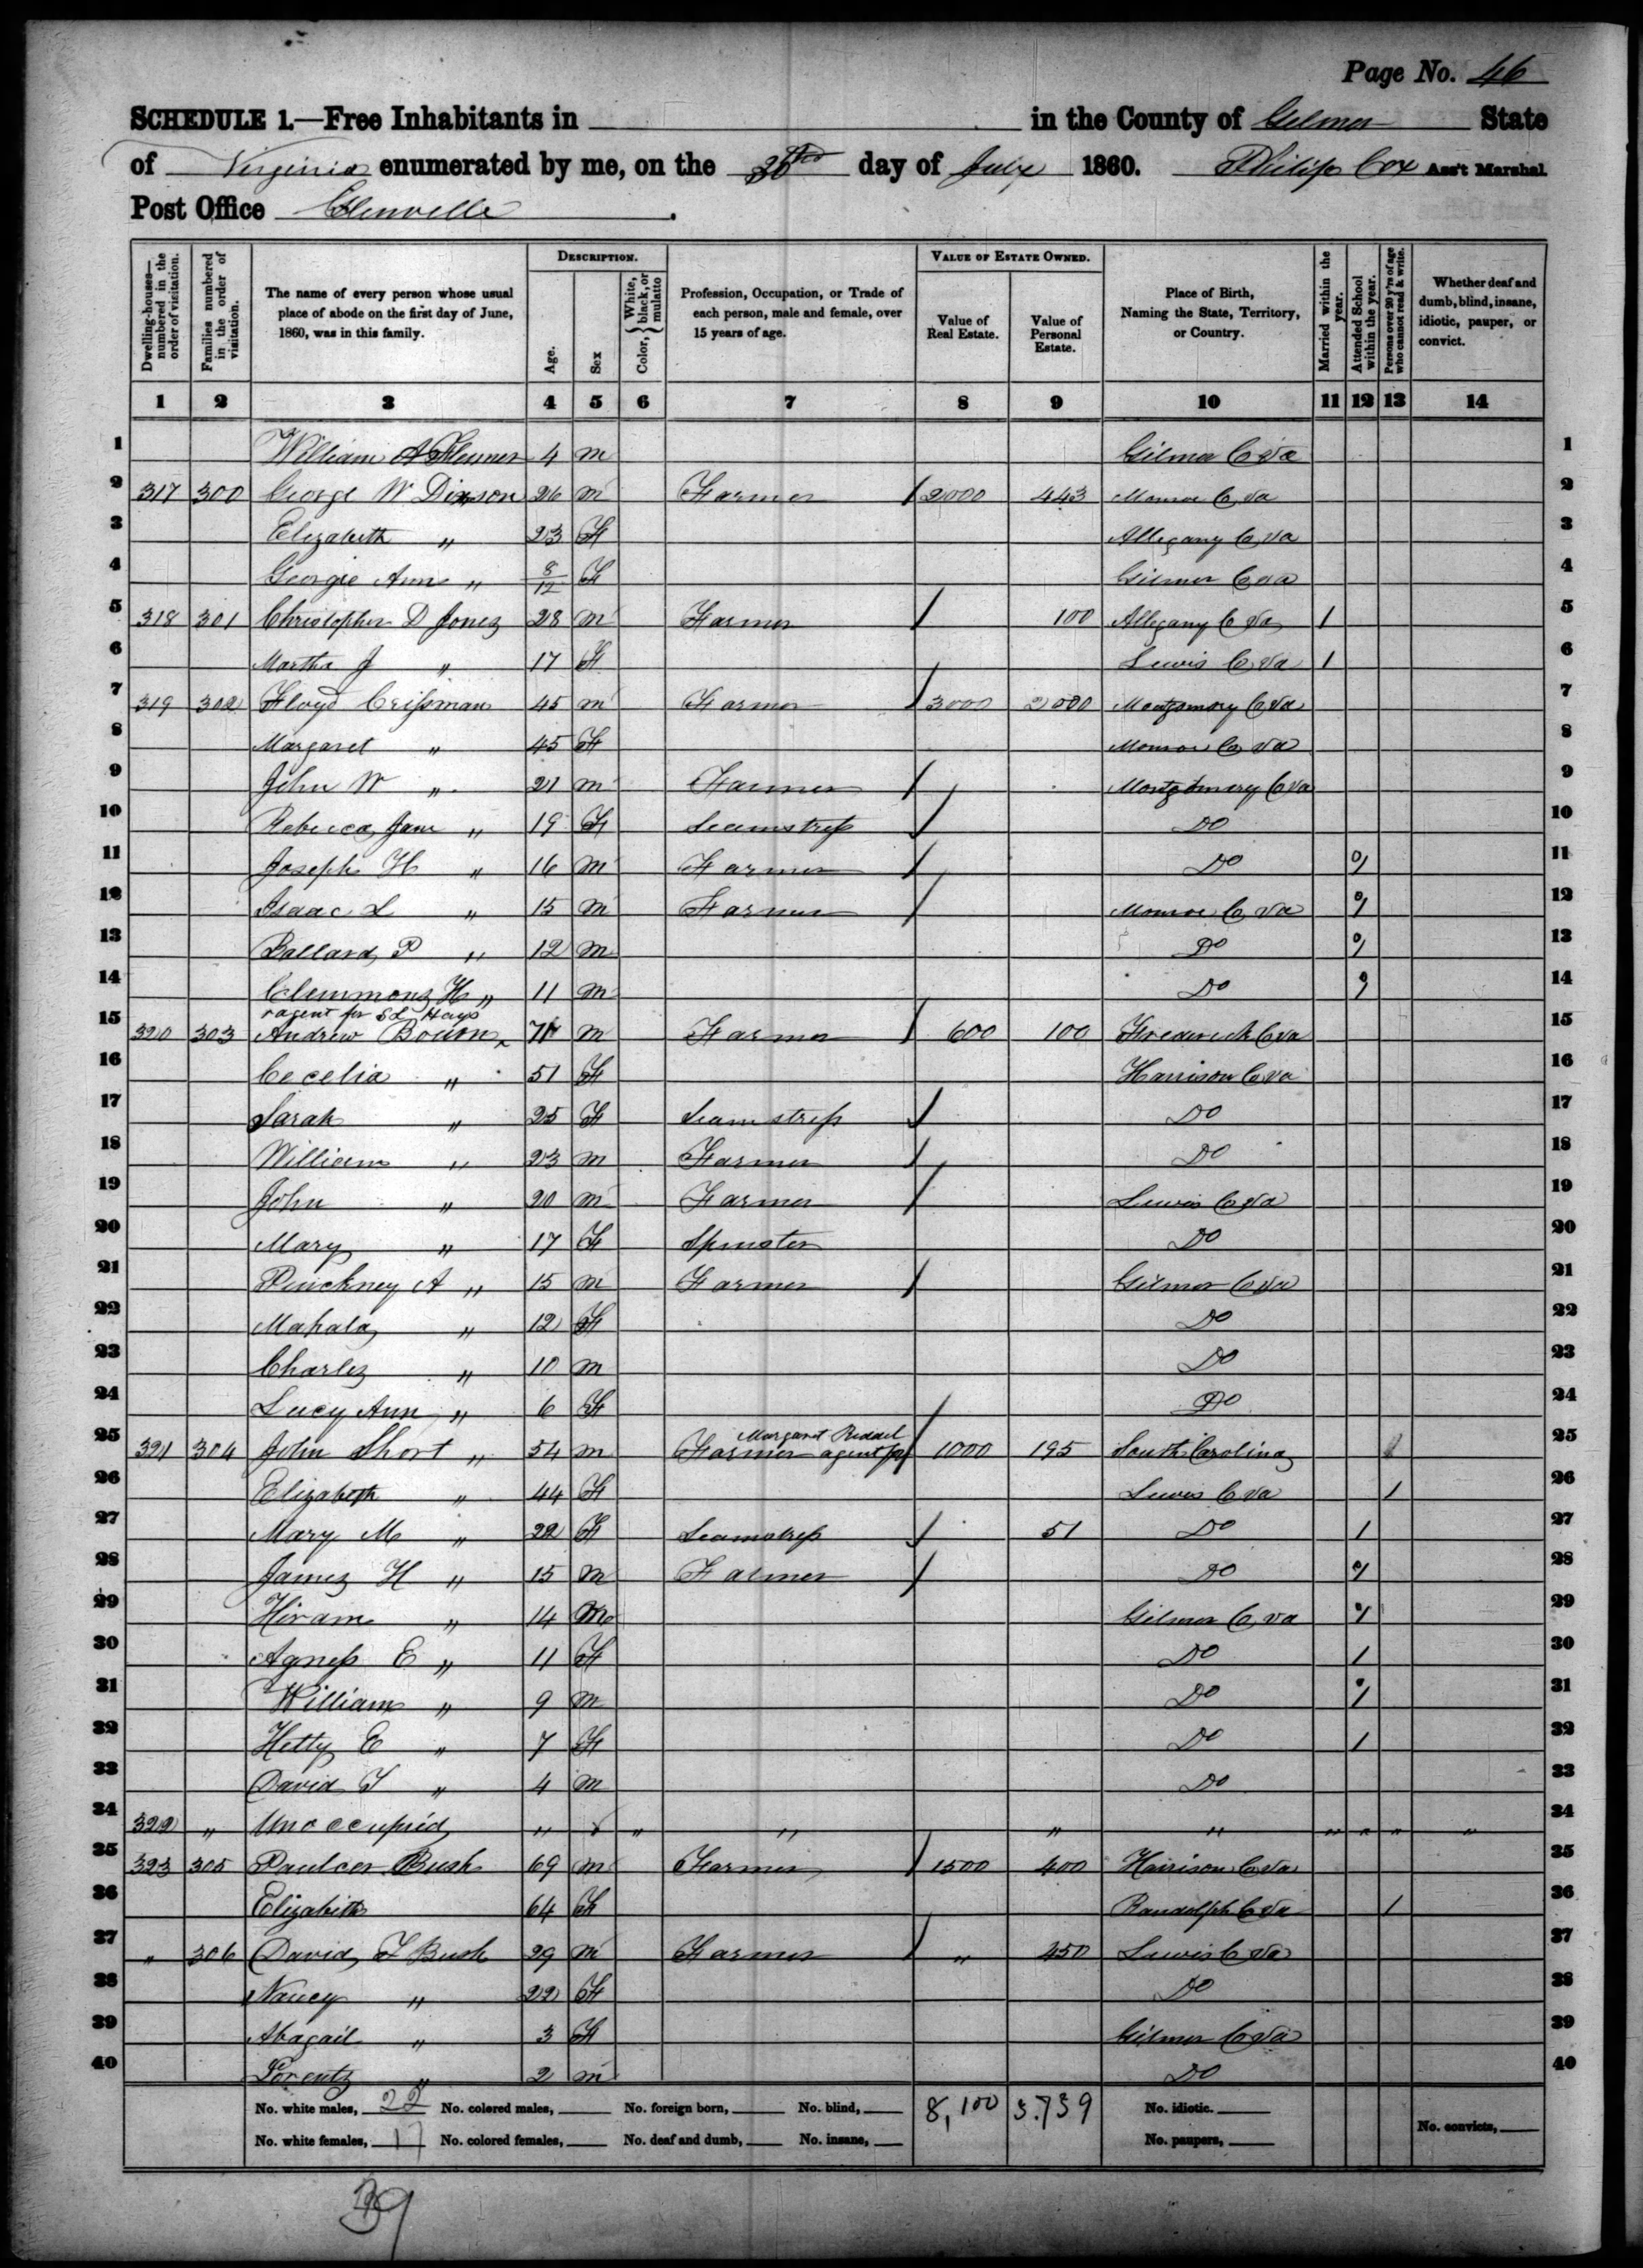 Page No. 46
SCHEDULE 1.—Free Inhabitants in in the County of Gilmer State
of Virginia enumerated by me, on the day of July 1860. Philip Cox Ass't Marshal.
Post Office Glenville
Dwelling-houses—numbered in the order of visitation.
Families numbered in the order of visitation.
The name of every person whose usual place of abode on the first day of June, 1860, was in this family.
DESCRIPTION.
Age.
Sex
Color, { White, black, or mulatto
Profession, Occupation, or Trade of each person, male and female, over 15 years of age.
VALUE OF ESTATE OWNED.
Value of Real Estate.
Value of Personal Estate.
Place of Birth, Naming the State, Territory, or Country.
Married within the year.
Attended School within the year.
Persons over 20 y'rs of age who cannot read & write.
Whether deaf and dumb, blind, insane, idiotic, pauper, or convict.
1 2 3 4 5 6 7 8 9 10 11 12 13 14
1 William A 4 m Gilmer Co Va 1
2 317 300 George W Dixson 26 m Farmer / 2000 443 Monroe Co Va 2
3 Elizabeth " 23 F Allegany Co Va 3
4 Georgie Ann " 8/12 F Gilmer Co Va 4
5 318 301 Christopher D Jones 28 m Farmer / 100 Allegany Co Va 1 5
6 Martha J " 17 F Lewis Co Va 1 6
7 319 302 Floyd Crissman 45 m Farmer / 3000 2000 Montgomery Co Va 7
8 Margaret " 45 F Monroe Co Va 8
9 John W " 21 m Farmer / Montgomery Co Va 9
10 Rebecca Jane " 19 F Seamstress / Do 10
11 Joseph H " 16 m Farmer / Do 1 11
12 Isaac L " 15 m Farmer / Monroe Co Va 1 12
13 Ballard P " 12 m Do 1 13
14 Clemmons H " 11 m Do 1 14
agent for S L Hays
15 320 303 Andrew 71 m Farmer / 600 100 Frederick Co Va 15
16 Cecelia " 51 F Harrison Co Va 16
17 Sarah " 25 F Seamstress / Do 17
18 William " 23 m Farmer / Do 18
19 John " 20 m Farmer / Lewis Co Va 19
20 Mary " 17 F Spinster Do 20
21 Pinckney A " 15 m Farmer / Gilmer Co Va 21
22 Mahala " 12 F Do 22
23 Charles " 10 m Do 23
24 Lucy Ann " 6 F Do 24
Margaret
25 321 304 John Short " 54 m Farmer agent for / 1000 195 South Carolina 1 25
26 Elizabeth " 44 F Lewis Co Va 1 26
27 Mary M " 22 F Seamstress / 51 Do 1 27
28 James H " 15 m Farmer / Do 1 28
29 Hiram " 14 m Gilmer Co Va 1 29
30 Agness E " 11 F Do 1 30
31 William " 9 m Do 1 31
32 Hetty E " 7 F Do 1 32
33 David T " 4 m Do 33
34 322 " Unoccupied " " " " " " " " " " 34
35 323 305 Paulcer Bush 69 m Farmer / 1500 400 Harrison Co Va 35
36 Elizabeth 64 F Randolph Co Va 1 36
37 " 306 David T Bush 29 m Farmer / " 450 Lewis Co Va 37
38 Nancy " 22 F Do 38
39 Abagail " 3 F Gilmer Co Va 39
40 Lorentz " 2 m Do 40
No. white males, 22 No. colored males, No. foreign born, No. blind, 8,100 3.739 No. idiotic.
No. white females, 17 No. colored females, No. deaf and dumb, No. insane, No. paupers, No. convicts,
39